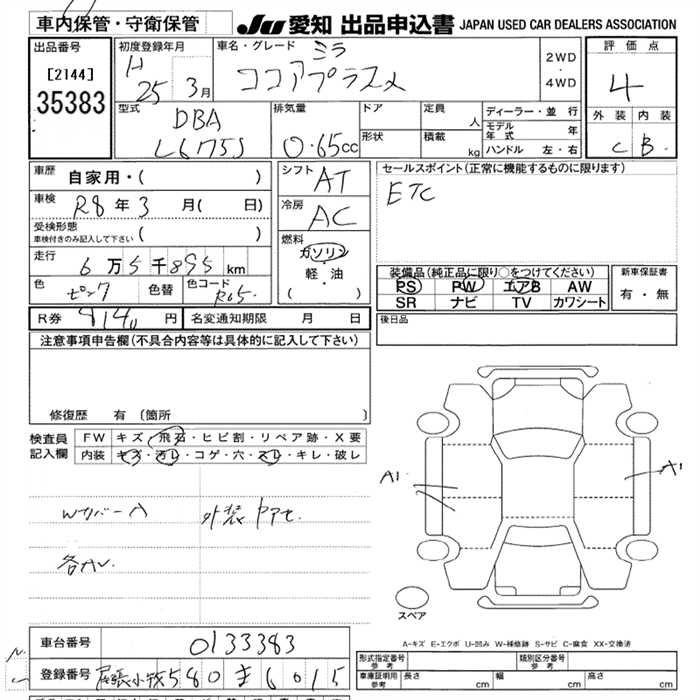 車内保管・守衛保管
JU 愛知 出品申込書 JAPAN USED CAR DEALERS ASSOCIATION
出品番号
[2144]
35383
初度登録年月
H 25 3月
車名・グレード
ミラ
ココアプラスX
2WD
・
4WD
評価点
4
外装 内装
C B
型式
DBA
L675S
排気量
0.65cc
ドア
形状
定員 人
積載 kg
ディーラー・並行
モデル年式 年
ハンドル 左・右
車歴 自家用・( )
車検 R8年3月( 日)
受検形態
車検付きのみ記入して下さい ( )
走行 6万5千895km
色 ピンク 色替 色コード R65
シフト AT
冷房 AC
燃料
ガソリン
軽・油
( )
セールスポイント(正常に機能するものに限ります)
ETC
装備品(純正品に限り○をつけてください)
PS PW エアB AW
SR ナビ TV カワシート
新車保証書
有・無
R券 円
名変通知期限 月 日
後日品
注意事項申告欄(不具合内容等は具体的に記入して下さい)
修復歴 有 (箇所 )
検査員
記入欄
FW キズ・飛石・ヒビ割・リペア跡・X要
内装 キズ・汚レ・コゲ・穴・スレ・キレ・破レ
Wカバー A
外装
A1
A1
スペア
A-キズ E-エクボ U-凹み W-補修跡 S-サビ C-腐食 XX-交換済
車台番号 0133383
登録番号 尾張小牧580 6015
形式指定番号
参考
類別区分番号
参考
車庫証明用
参考
長さ cm
幅 cm
高さ cm